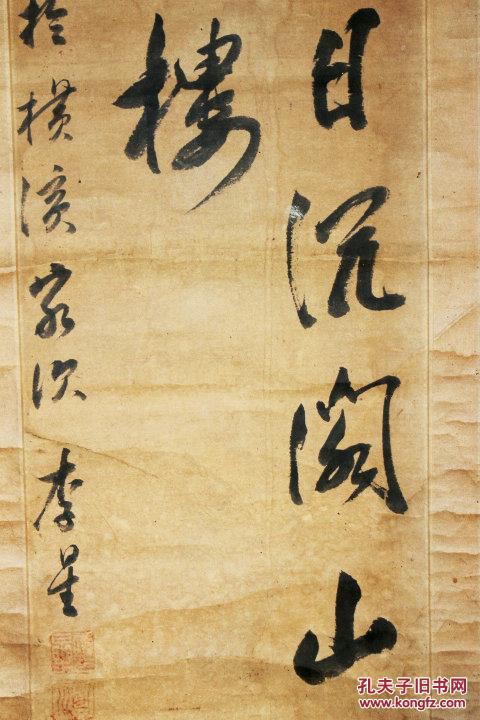 日沉阁山
樓
於横溪客次 李星
孔夫子旧书网
www.kongfz.com